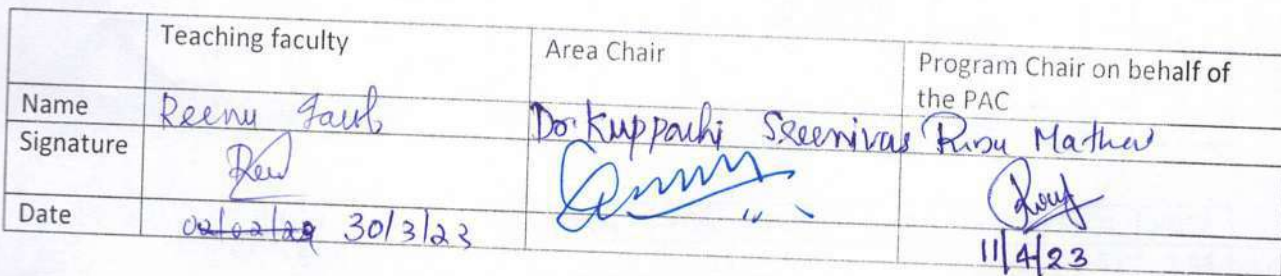 Teaching faculty Area Chair Program Chair on behalf of
the PAC
Name Reenu Dr. Kuppachi Sreenivas Rinu Mathew
Signature
Date 02/02/23 30/3/23 11/4/23